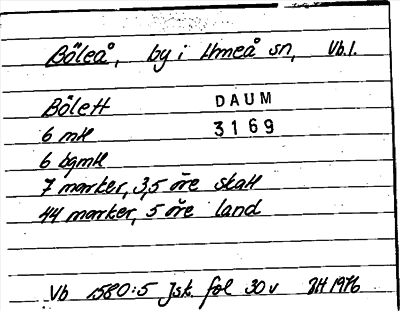 Böleå, by i Umeå sn, Vb.l.
Bölett DAUM
6 mtl 3169
6 bgmtl
7 marker, 3,5 öre skatt
44 marker, 5 öre land
Vb 1580:5 Jsk. fol 30v 1976